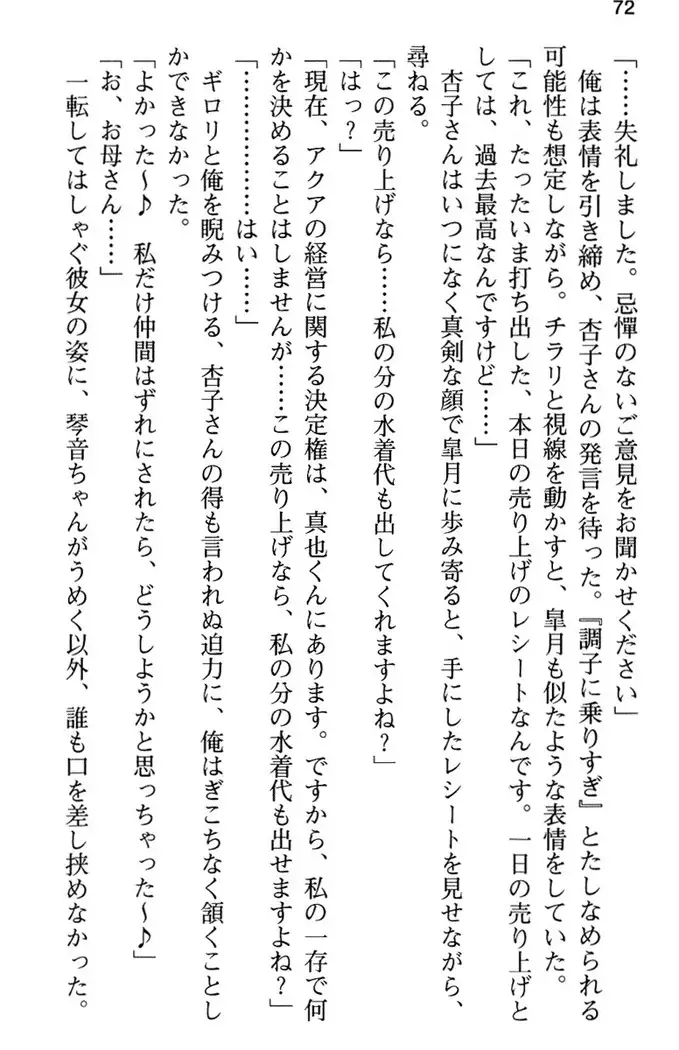 72
「……失礼しました。忌憚のないご意見をお聞かせください」
　俺は表情を引き締め、杏子さんの発言を待った。『調子に乗りすぎ』とたしなめられる
可能性も想定しながら。チラリと視線を動かすと、皐月も似たような表情をしていた。
「これ、たったいま打ち出した、本日の売り上げのレシートなんです。一日の売り上げと
しては、過去最高なんですけど……」
　杏子さんはいつになく真剣な顔で皐月に歩み寄ると、手にしたレシートを見せながら、
尋ねる。
「この売り上げなら……私の分の水着代も出してくれますよね？」
「はっ？」
「現在、アクアの経営に関する決定権は、真也くんにあります。ですから、私の一存で何
かを決めることはしませんが……この売り上げなら、私の分の水着代も出せますよね？」
「………………はい……」
　ギロリと俺を睨みつける、杏子さんの得も言われぬ迫力に、俺はぎこちなく頷くことし
かできなかった。
「よかった～♪　私だけ仲間はずれにされたら、どうしようかと思っちゃった～♪」
「お、お母さん……」
　一転してはしゃぐ彼女の姿に、琴音ちゃんがうめく以外、誰も口を差し挟めなかった。